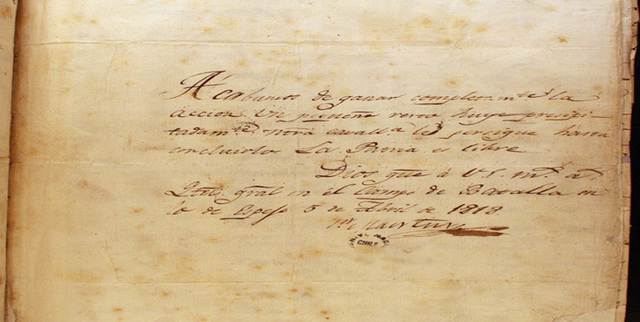 Acabamos de ganar completamte. la
accion. Un pequeño resto huye precipi-
tadamte. nra cavalla. lo persigue hasta
concluirlo La Patria es libre
Dios gue. a V.S. ms. as.
Qtel. gral en el Campo de Batalla en
lo de Espejo 5 de Abril de 1818
Sn. Martin
CHILE